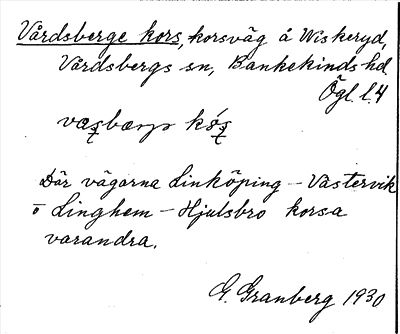 Vårdsberge kors, korsväg å Wiskeryd,
Vårdsbergs sn, Bankekinds hd
Ögl. l. 4
Där vägarna Linköping – Västervik
o Linghem – Hjulsbro korsa
varandra.
G. Granberg 1930